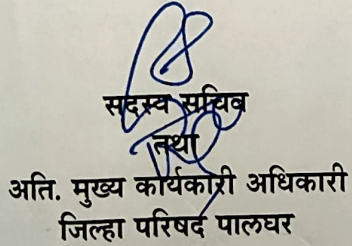 सदस्य सचिव
तथा
अति. मुख्य कार्यकारी अधिकारी
जिल्हा परिषद पालघर